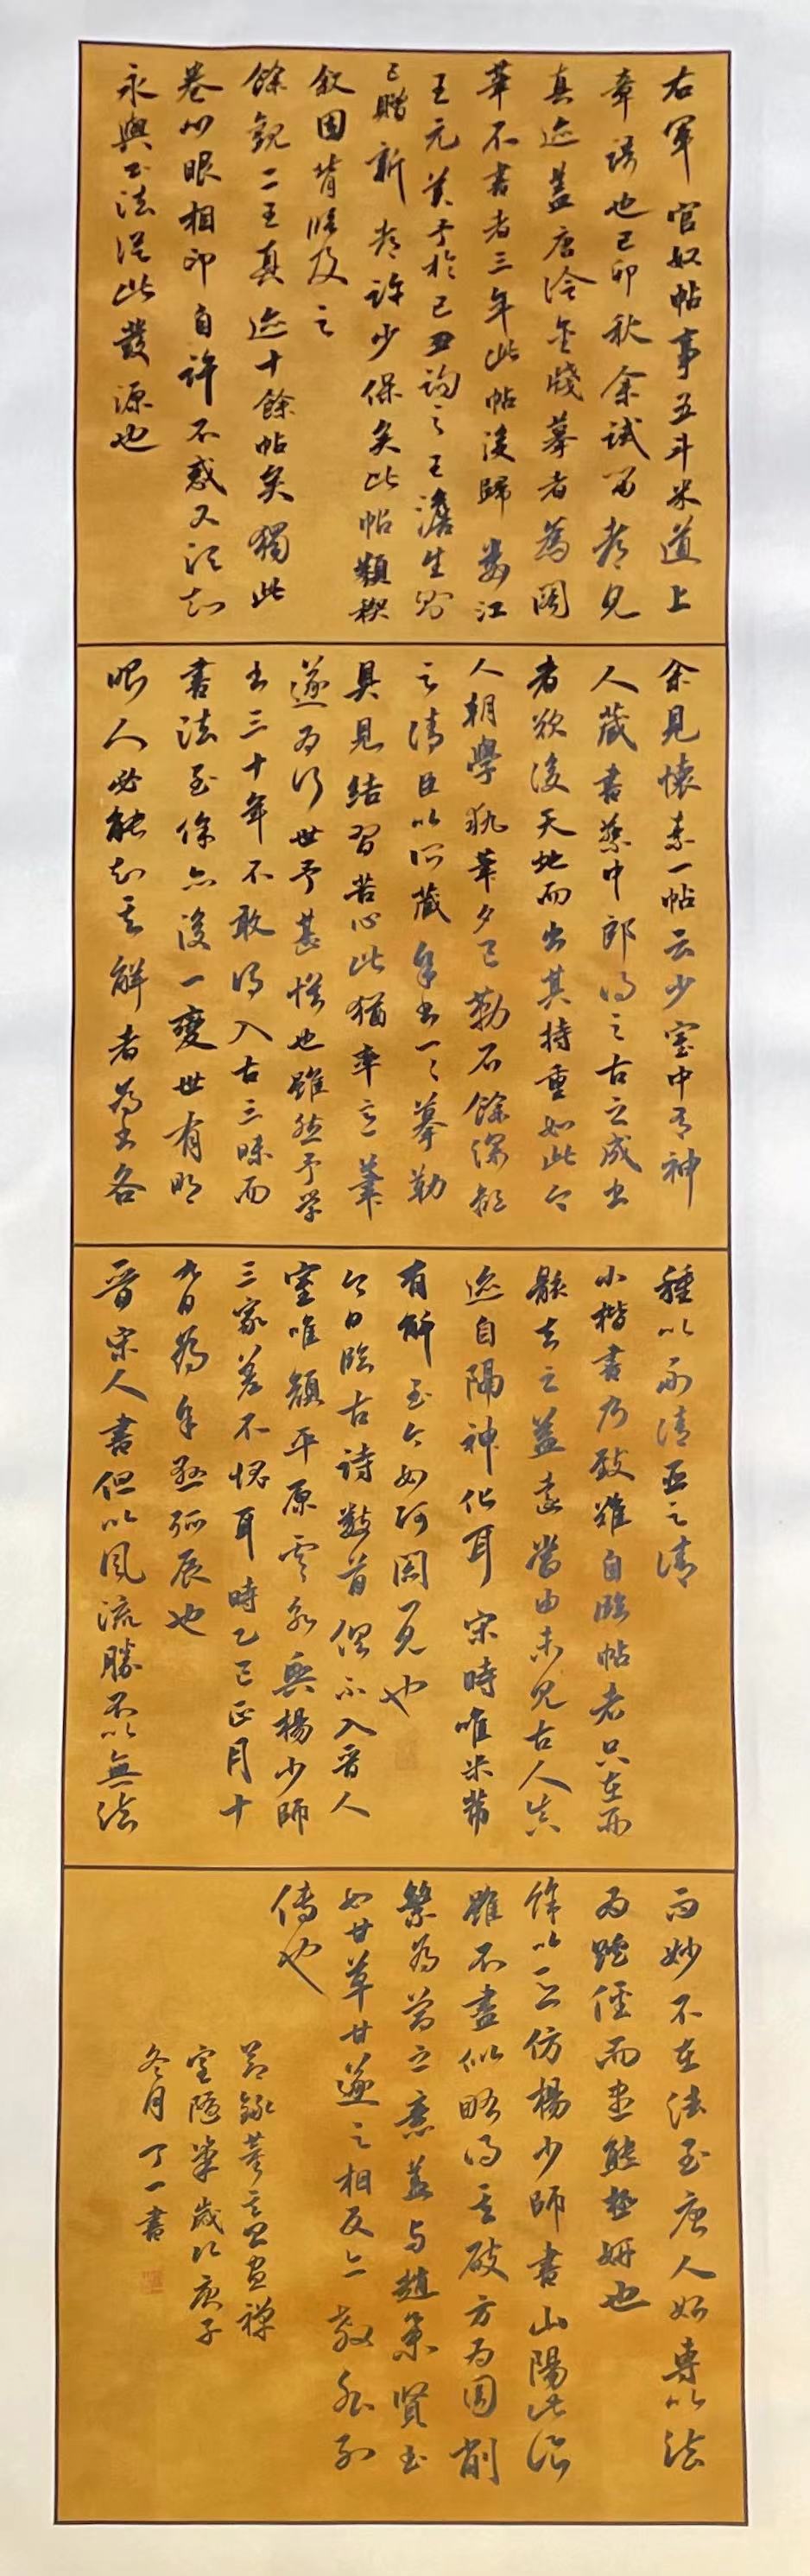 右軍官奴帖事五斗米道上
章語也己卯秋余試留都見
真迹蓋唐冷金牋摹者為閣
筆不書者三年此帖後歸婁江
王元美予於己丑詢之王澹生則
已贈新都許少保矣此帖類禊
敘因背臨及之
餘觀二王真迹十餘帖矣獨此
卷心眼相印自許不惑又須知
永興書法從此發源也
余見懷素一帖云少室中有神
人藏書蔡中郎得之古之成書
者欲後天地而出其持重如此今
人朝學執筆夕已勒石餘深鄙
之清臣以所藏余書一一摹勒
具見結習苦心此猶率意筆
遂為行世予甚懼也雖然予學
書三十年不敢謂入古三昧而
書法至餘亦復一變世有明
眼人必能知其解者為書各
種以副清臣之請
小楷書乃致難自臨帖者只在形
骸去之益遠當由未見古人真
迹自隔神化耳 宋時唯米芾
有解至今如阿閦一見也
今日臨古詩數首俱不入晉人
室唯顏平原虞永興楊少師
三家差不愧耳時乙巳正月十
九日為余懸弧辰也
晉宋人書但以風流勝不以無法
而妙不在法至唐人始專以法
為蹊徑而盡態極妍也
餘以意仿楊少師書山陽此論
雖不盡似略得其破方為圓削
繁為簡之意蓋與趙集賢書
如甘草甘遂之相反亦教外別
傳也
節錄董其昌畫禪
室隨筆歲次庚子
冬月丁一書